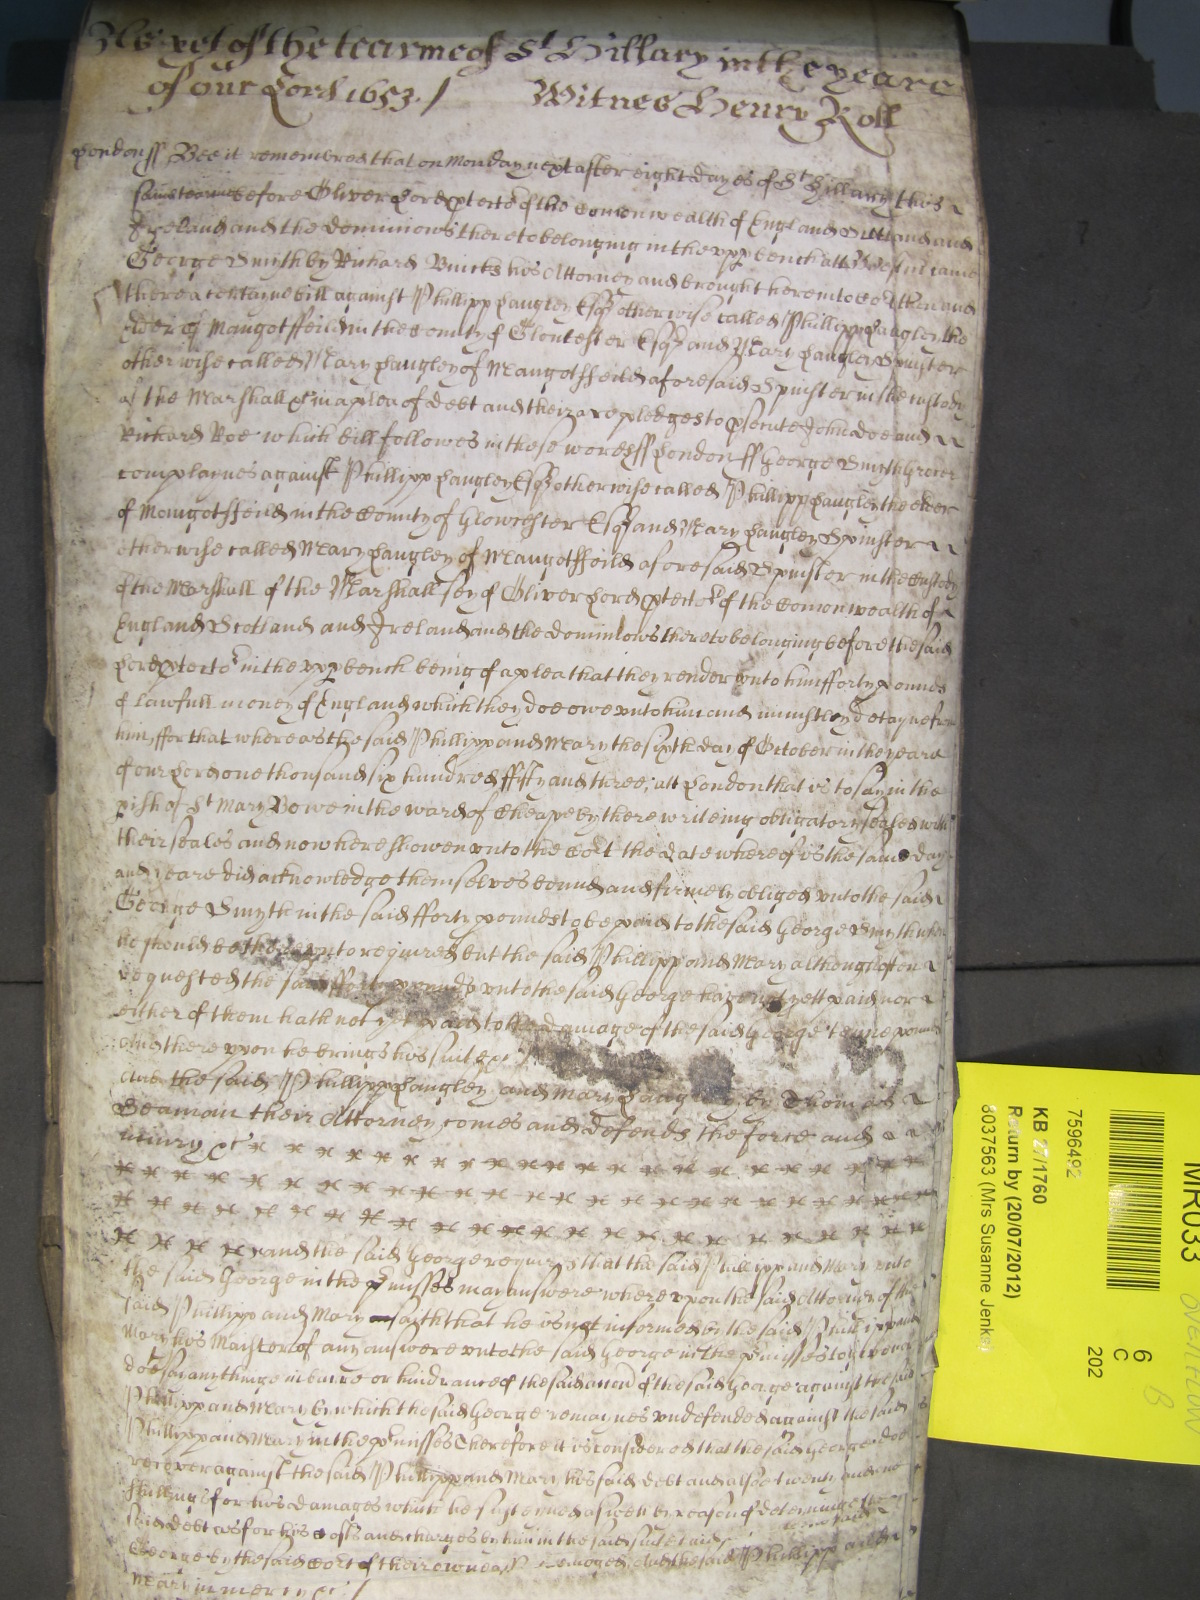 As yet of the tearme of St Hillary in the yeare
of our Lord 1653./ Witnes Henry Roll
London ss Bee it remembred that on Monday next after eight dayes of St Hillary this
same tearme before Oliver Lord ptector of the Comonwealth of England Scotland and
Ireland and the dominions thereto belonging in the upp bench att Westmr came
George Smyth by Richard his Attorney and brought here into Cort then and
there a certayne bill against Phillipp Langley Esqr otherwise called Phillipp Langley the
elder of Mangotsfeild in the County of Gloucester Esqr and Mary Langley Spinster
otherwise called Mary Langley of Mangotsfeild aforesaid Spinster in the custody
of the Marshall &c in a plea of debt and their are pledges to psecute John Doe and
Richard Roe which bill followes in these words ss London ss George Smyth Grocer
complaines against Phillipp Langley Esqr otherwise called Phillipp Langley the elder
of Mangotsfeild in the County of Glowcester Esqr and Mary Langley Spinster
otherwise called Mary Langley of Mangotsfeild aforesaid Spinster in the Custody
of the Marshall of the Marshallsey of Oliver Lord ptector of the Comonwealth of
England Scotland and Ireland and the dominions thereto belonging before the said
Lord ptector in the upp bench being of a plea that they render unto him fforty pounds
of lawfull money of England which they doe owe unto him and uniustley detayne from
him, ffor that whereas the said Phillipp and Mary the sixth day of October in the yeare
of our Lord one thousand six hundred ffifty and three, att London that is to say in the
pish of St Mary Bowe in the ward of Cheape by there writeing obligatory sealed with
their seales and now here shewen unto the Cort the date whereof is the same day
and yeare did acknowledge themselves bound and firmely obliged unto the said
George Smyth in the said fforty pounds to be paid to the said George Smyth when
he should be thereunto required but the said Phillipp and Mary although often
requested the said fforty pounds unto the said George have not yett paid nor
either of them hath not yet paid to the damage of the said George tenne pounds
and thereupon he brings his suit &c
And the said Phillipp Langley and Mary Langley by Thomas
Seaman their Attorney comes and defends the force and
iniury &c
and the said George requires that the said Phillipp and Mary unto
the said George in the pmisses may answere whereupon the said Attorney of the
said Phillipp and Mary saith that he is not informed by the said Phillipp and
Mary his Maister of any answere unto the said George in the pmisses to
doe say any thinge in barre or hindrance of the said accon of the said George against the said
Phillipp and Mary by which the said George remaynes undefended against the said
Phillipp and Mary in the pmisses Therefore it is considered that the said George doe
recover against the said Phillipp and Mary his said debt and also twenty and one
shillings for his damages which he susteyned aswell by reason of deteyninge the
said debt as for his costs and charges by him in the said suite
George by the said Cort of their owne And the said Phillipp and
Mary in mercy &c /
MR033
6
C
202
7596492
KB 27/1760
Return by (20/07/2012)
8037563 (Mrs Susanne Jenks